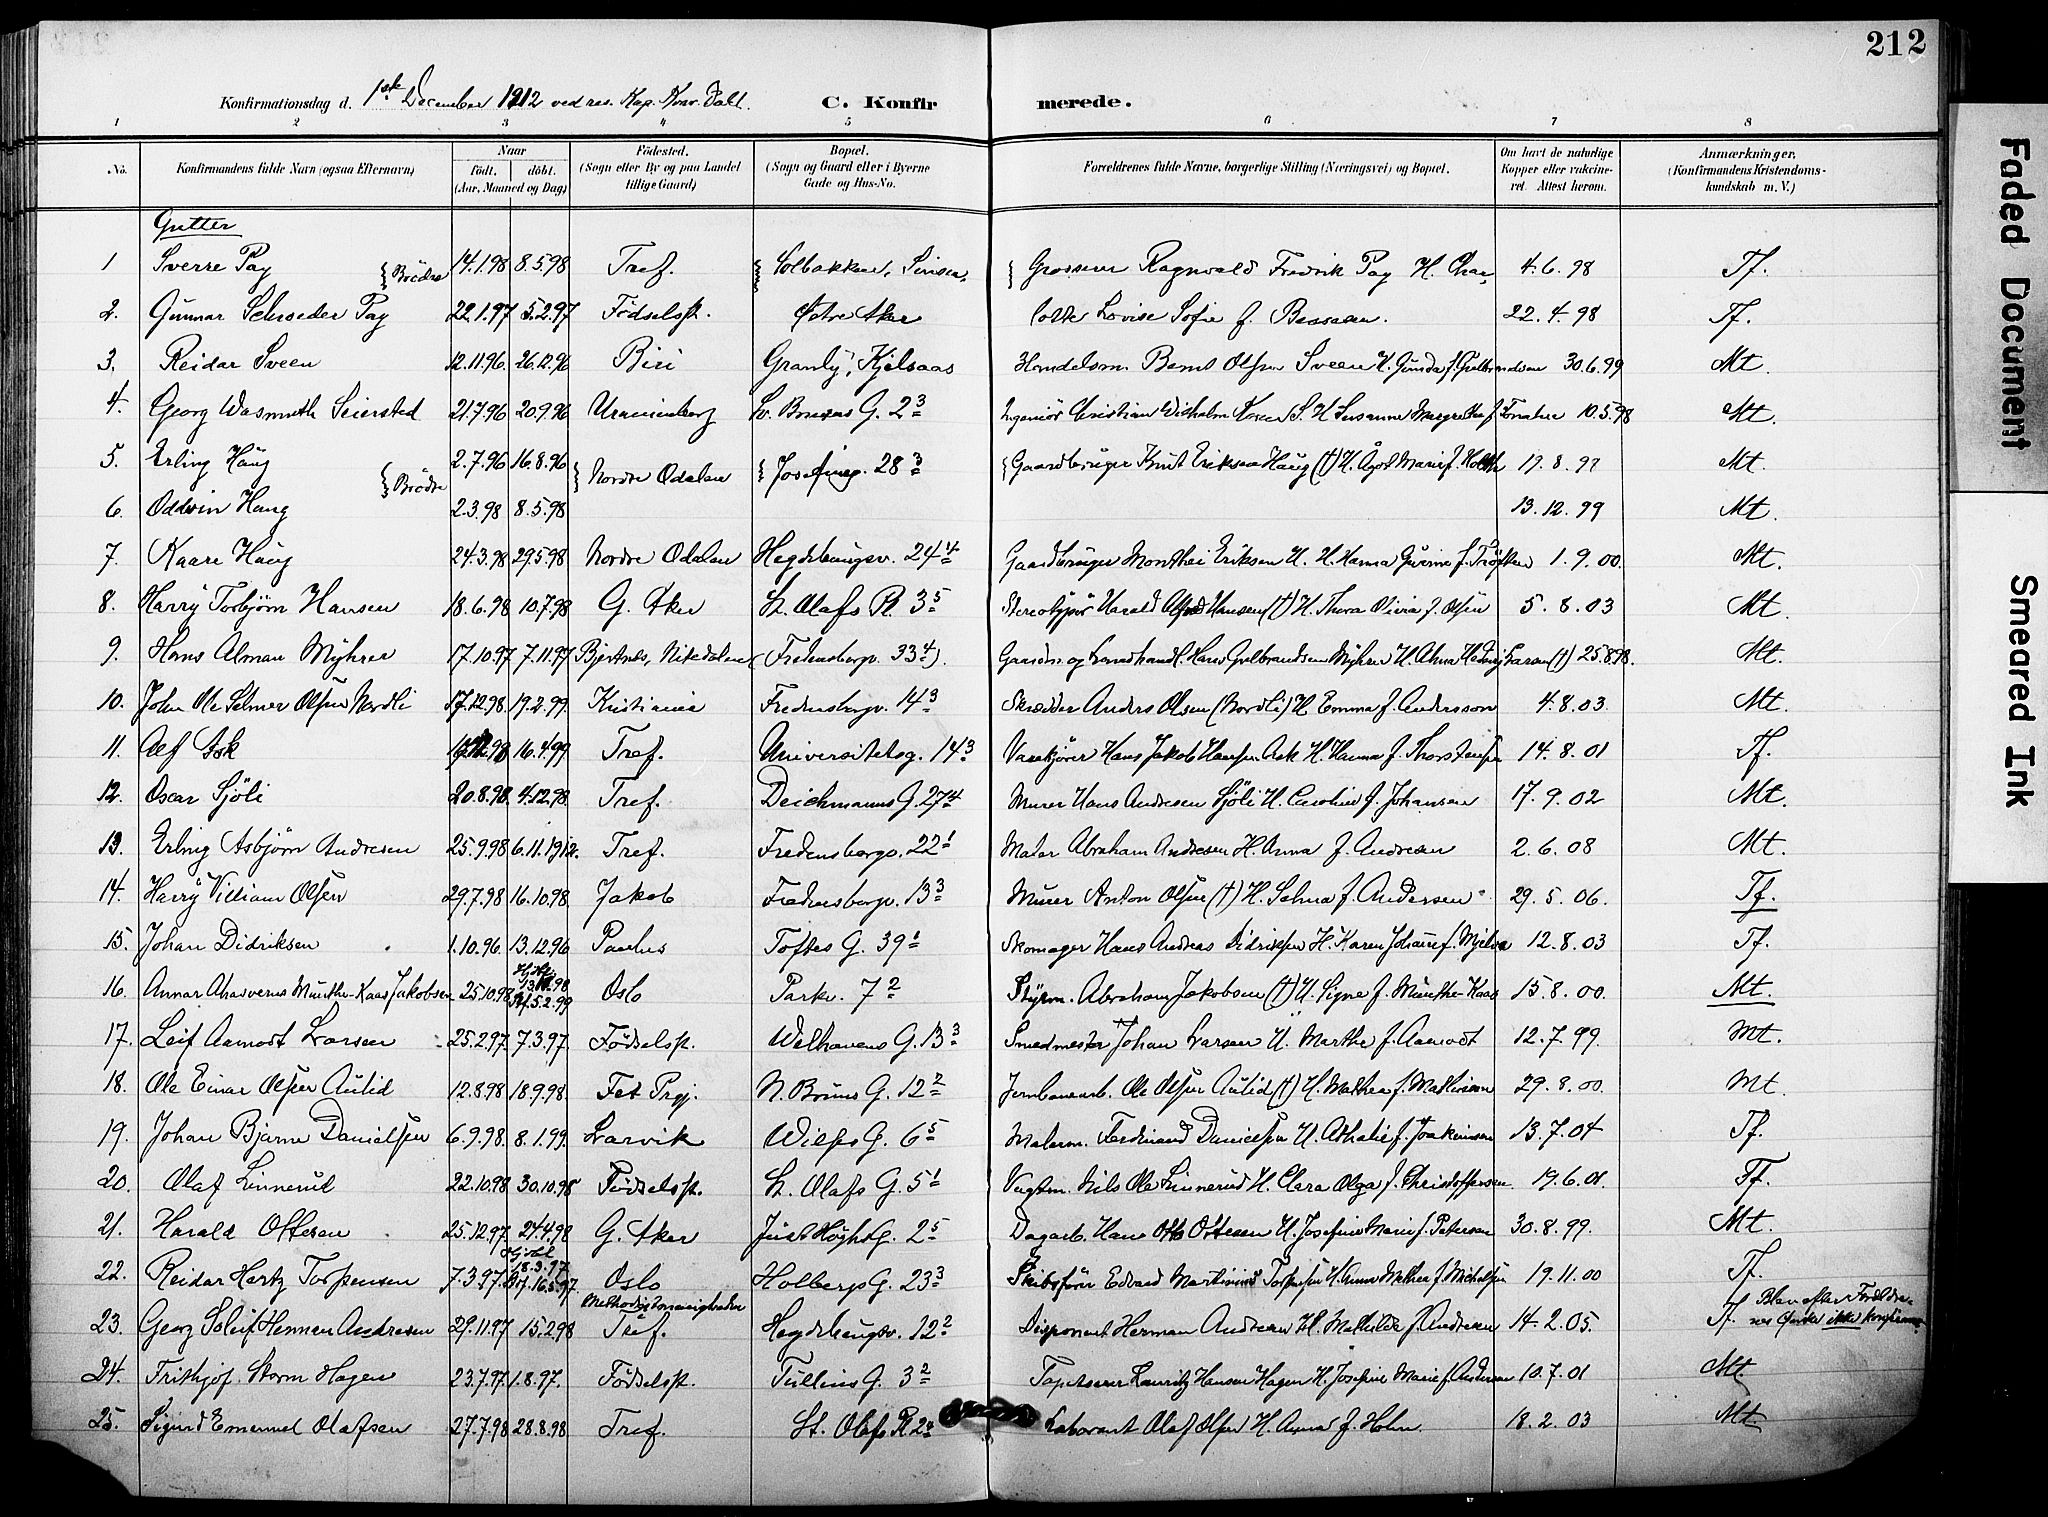 212
Konfirmationsdag d. 1ste December 1912 ved res. Kap.
C. Konfirmerede.
1 2 3 4 5 6 7 8
No.
Konfirmandens fulde Navn (ogsaa Efternavn)
Naar
født. døbt.
(Aar, Maaned og Dag)
Fødested.
(Sogn eller By og paa Landet tillige Gaard)
Bopæl.
(Sogn og Gaard eller i Byerne Gade og Hus-No.
Forældrenes fulde Navne, borgerlige Stilling (Næringsvei) og Bopæl.
Om havt de naturlige Kopper eller vakcineret. Attest herom.
Anmærkninger.
(Konfirmandens Kristendomskundskab m. V.)
Gutter
1 Sverre Pay } Brödre 14.1.98 8.5.98 Tref. Solbakken, Sinsen, Grosserer Ragnvald Fredrik Pay H. Char- 4.6.98 Tf.
2. Gunnar Schroeder Pay 22.1.97 5.2.97 Födselsst. Østre Aker lotte Lovise Sofie f. 22.4.98 Tf.
3. Reidar Sveen 12.11.96 26.12.96 Biri Granly, Kjelsaas Handelsm. Bernt Olsen Sveen H. Gunda f. 30.6.99 Mt.
4. Georg Wasmuth Seiersted 21.7.96 20.9.96 Uranienborg G. 2 3 Ingeniör Christian Wilhelm S. H. Susanne Margrethe f. 10.5.98 Mt.
5. Erling Haug } Brödre 2.7.96 16.8.96 Nordre Odalen Josefinesg. 28 3 Gaardbruger Knut Eriksen Haug (†) H. Marie f. 19.8.97 Mt.
6. Oddvin Haug 2.3.98 8.5.98 13.12.99 Mt.
7. Kaare Haug 24.3.98 29.5.98 Nordre Odalen Hegdehaugsv. 24 4 Gaardbruger Eriksen H. H. Hanna f. 1.9.00. Mt.
8. Harry Torbjörn Hansen 18.6.98 10.7.98 G. Aker St. Olafs Pl. 3 5 Stereotypör Harald Hansen (†) H. Thora Olivia f. Olsen 5.8.03 Mt.
9. Hans Alman Myhrer 17.10.97 7.11.97 Bjertnes, Nitedalen (Fredensborgv. 33 4). Gaardm. og Landhandl. Hans Gulbrandsen Myhrer H. Alma Hedvig Larsen (†) 25.8.98. Mt.
10. John Ole Selmer Olsen Nordli 17.12.98 19.2.99 Kristiania Fredensborgv. 14 3 Skrædder Anders Olsen (Nordli) H. Emma f. Andersson 4.8.03. Mt.
11. Alf Ask 16.4.99 Tref. Universitetsg. 14 3 Varekjører Hans Jakob Hansen Ask H. Hanna f. Thorstensen 14.8.01 Tf.
12. Oscar Sjöli 20.8.98 4.12.98 Tref. Deichmanns G. 27 4 Murer Hans Andresen Sjöli H. Caroline f. Johansen 17.9.02 Mt.
13. Erling Asbjörn Andresen 25.9.98 6.11.1912. Tref. Fredensborgv. 22 1 Maler Abraham Andresen H. Anna f. Andresen 2.6.08 Mt.
14. Harry Villiam Olsen 29.7.98 16.10.98 Jakob Fredensborgv. 13 3 Murer Anton Olsen (†) H. Selma f. Andersen 29.5.06. Tf.
15. Johan Didriksen 1.10.96 13.12.96 Paulus Toftes G. 39 1 Skomager Hans Andreas Didriksen H. Karen f. 12.8.03 Tf.
16. Annar Ahasverus Munthe-Kaas Jakobsen 25.10.98 5.2.99 Oslo Parkv. 7 2 Styrm. Abraham Jakobsen (†) H. Signe f. Munthe-Kaas 15.8.00. Mt.
17. Leif Aamodt Larsen 25.2.97 7.3.97. Födselsst. Welhavens G. 13 3 Smedmester Johan Larsen H. Marthe f. Aamodt 12.7.99. Mt.
18. Ole Einar Olsen Aulid 12.8.98 18.9.98. Fet Prgj. N. Bruns G. 12 2 Jernbanearb. Ole Olsen Aulid (†) H. Mathea f. Mathisen 29.8.00. Mt.
19. Johan Bjarne Danielsen 6.9.98. 8.1.99. Larvik Wilses G. 6 5 Malerm. Ferdinand Danielsen H. Athalie f. Joakimsen 13.7.04 Tf.
20. Olaf Linnerud 22.10.98 30.10.98 Födselsst. St. Olafs G. 5 1 Vagtm. Nils Ole Linnerud H. Clara Olga f. Christoffersen 19.6.01. Tf.
21. Harald Ottesen 25.12.97 24.4.98 G. Aker Just Høghs G. 2 5 Dagarb. Hans Otto Ottesen H. Josefine Marie f. Petersen 30.8.99. Mt.
22. Reidar Hertz Torstensen 7.3.97. 18.3.97 16.5.97. Oslo Holbergs G. 23 3 Skibsfører Edvard Martinius H. Anna Mathea f. Michelsen 19.11.00 Tf.
23. Georg Herman Andresen 29.11.97 15.2.98 Methodistmenigheden Tref. Hegdehaugsv. 12 2 Disponent Herman Andresen H. Mathilde f. Andresen 14.2.05. Tf. Blev efter Forældrenes Ønske ikke
24. Frithjof Storm Hagen 23.7.97 1.8.97. Födselsst. Tullins G. 3 2 Tapetserer Lauritz Hansen Hagen H. Josefine Marie f. Andersen 10.7.01 Mt.
25. Sigurd Emanuel Olafsen 27.7.98 28.8.98 Tref. St. Olafs Pl. 2 Laborant Olaf Olsen H. Anna f. Holm 18.2.03 Mt.
Faded Document
Smeared Ink